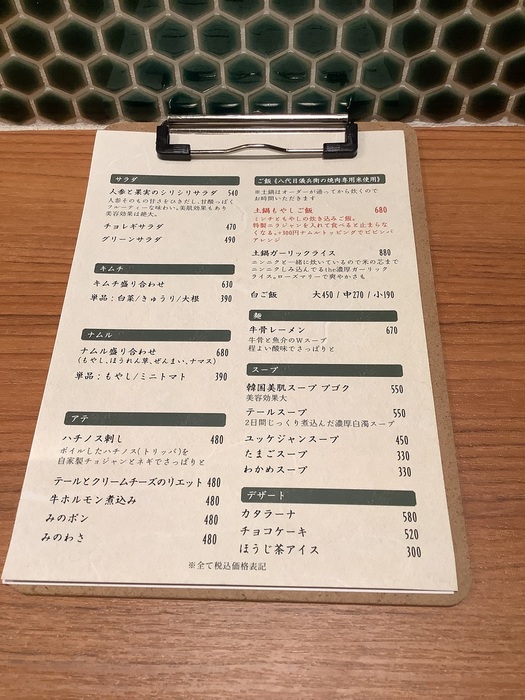 サラダ
人参と果実のシリシリサラダ 540
人参そのもの甘さを引きだし、甘酸っぱく
フルーティーな味わい。美肌効果もあり
美容効果は絶大。
チョレギサラダ 470
グリーンサラダ 490
キムチ
キムチ盛り合わせ 630
単品：白菜/きゅうり/大根 390
ナムル
ナムル盛り合わせ 680
(もやし、ほうれん草、ぜんまい、ナマス)
単品：もやし/ミニトマト 390
アテ
ハチノス刺し 480
ボイルしたハチノス(トリッパ)を
自家製チョジャンとネギでさっぱりと
テールとクリームチーズのリエット 480
牛ホルモン煮込み 480
みのポン 480
みのわさ 480
ご飯《八代目儀兵衛の焼肉専用米使用》
※土鍋はオーダーが通ってから炊くので
お時間いただきます
土鍋もやしご飯 680
ミンチともやしの炊き込みご飯。
特製ニラジャンを入れて食べると止まらな
くなる。+300円ナムルトッピングでビビンバ
アレンジ
土鍋ガーリックライス 880
ニンニクと一緒に炊いているので米の芯まで
ニンニクしみ込んでるthe濃厚ガーリック
ライス。ローズマリーで爽やかさも
白ご飯 大450/中270/小190
麺
牛骨レーメン 670
牛骨と魚介のWスープ
程よい酸味でさっぱりと
スープ
韓国美肌スープ プゴク 550
美容効果大
テールスープ 550
2日間じっくり煮込んだ濃厚白濁スープ
ユッケジャンスープ 450
たまごスープ 330
わかめスープ 330
デザート
カタラーナ 580
チョコケーキ 520
ほうじ茶アイス 300
※全て税込価格表記